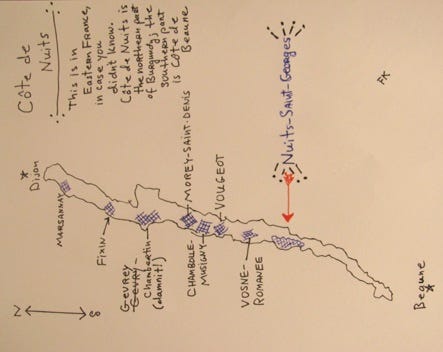 Côte de
Nuits
This is in
Eastern France,
in case you
didnt know.
Côte de Nuits is
the northern part
of Burgundy; the
southern part
is Côte de
Beaune
Dijon
MARSANNAY
FIXIN
Gevrey
Gevry-
Chambertin
(damnit!)
MOREY-SAINT-DENIS
CHAMBOLLE-
MUSIGNY
VOUGEOT
VOSNE-
ROMANEE
Nuits-Saint-Georges
Beaune
N
S